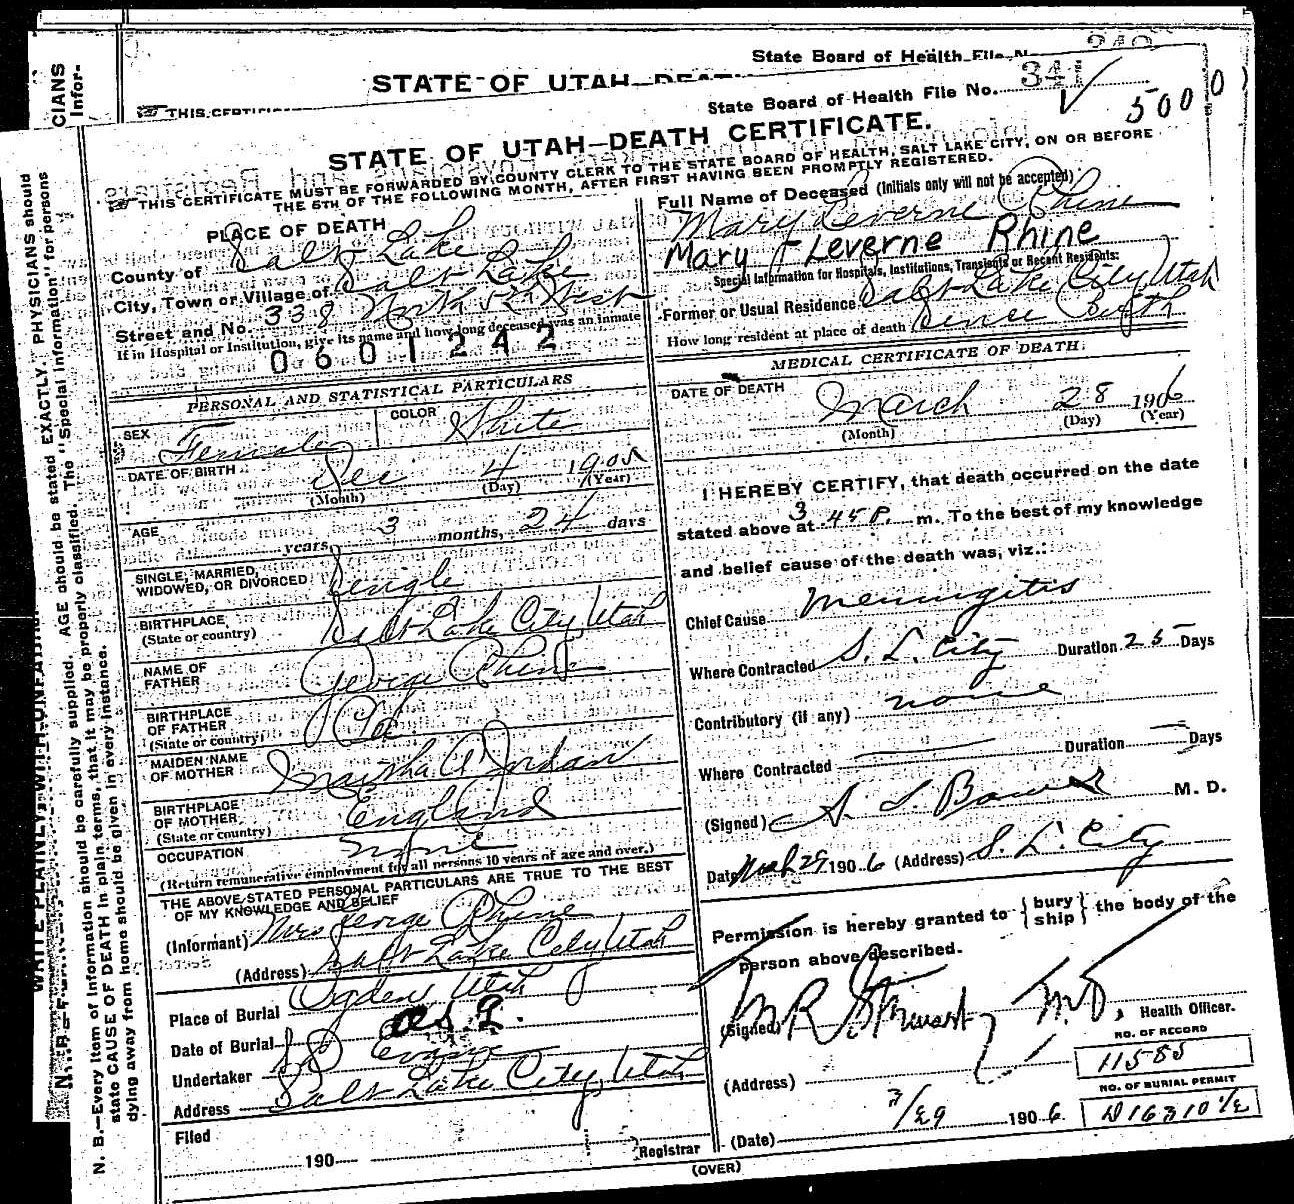 State Board of Health File N
STATE OF UTAH—DEAT
THIS CERTIFIC
CIANS
Infor-
State Board of Health File No. 341
5000
STATE OF UTAH—DEATH CERTIFICATE.
THIS CERTIFICATE MUST BE FORWARDED BY COUNTY CLERK TO THE STATE BOARD OF HEALTH, SALT LAKE CITY, ON OR BEFORE
THE 5TH OF THE FOLLOWING MONTH, AFTER FIRST HAVING BEEN PROMPTLY REGISTERED.
PLACE OF DEATH
County of Salt Lake
City, Town or Village of Salt Lake
Street and No. 338 North 5th West
If in Hospital or Institution, give its name and how long deceased was an inmate
0601242
PERSONAL AND STATISTICAL PARTICULARS
SEX Female
COLOR White
DATE OF BIRTH Dec 4 1905
(Month) (Day) (Year)
AGE years, 3 months, 24 days
SINGLE, MARRIED,
WIDOWED, OR DIVORCED Single
BIRTHPLACE
(State or country) Salt Lake City, Utah
NAME OF
FATHER George Rhine
BIRTHPLACE
OF FATHER
(State or country)
MAIDEN NAME
OF MOTHER Martha A Jordan
BIRTHPLACE
OF MOTHER
(State or country) England
OCCUPATION none
(Return remunerative employment for all persons 10 years of age and over.)
THE ABOVE STATED PERSONAL PARTICULARS ARE TRUE TO THE BEST
OF MY KNOWLEDGE AND BELIEF
(Informant) Mrs George Rhine
(Address) Salt Lake City, Utah
Place of Burial Ogden Utah
Date of Burial
Undertaker Evans
Address Salt Lake City, Utah
Filed
190 Registrar
Full Name of Deceased (Initials only will not be accepted)
Mary Leverne Rhine
Mary Leverne Rhine
Special Information for Hospitals, Institutions, Transients or Recent Residents:
Former or Usual Residence Salt Lake City Utah
How long resident at place of death Since Birth
MEDICAL CERTIFICATE OF DEATH.
DATE OF DEATH March 28 1906
(Month) (Day) (Year)
I HEREBY CERTIFY, that death occurred on the date
stated above at 3 45 P. m. To the best of my knowledge
and belief cause of the death was, viz.:
Chief Cause Meningitis
Where Contracted S. L. City Duration 25 Days
Contributory (if any) none
Where Contracted Duration Days
(Signed) M. D.
Date Mch 29 1906 (Address) S. L. City
Permission is hereby granted to {bury ship} the body of the
person above described.
(Signed) M R Stewart M.D. Health Officer.
NO. OF RECORD
11585
(Address)
NO. OF BURIAL PERMIT
(Date) 3/29 1906.
(OVER)
N. B.—Every item of information should be carefully supplied. AGE should be stated EXACTLY. PHYSICIANS should
state CAUSE OF DEATH in plain terms, that it may be properly classified. The "Special Information" for persons
dying away from home should be given in every instance.